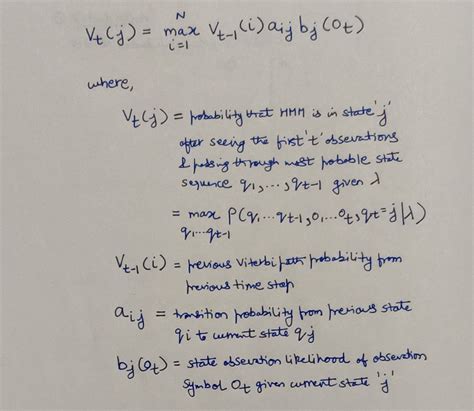 Vt(j) = max Vt-1(i) aij bj(Ot)
N
i=1
where,
Vt(j) = probability that HMM is in state 'j'
after seeing the first 't' observations
& passing through most probable state
sequence q1,...,qt-1 given λ
= max P(q1...qt-1,o1...ot,qt=j|λ)
q1...qt-1
Vt-1(i) = previous Viterbi path probability from
previous time step
aij = transition probability from previous state
qi to current state qj
bj(Ot) = state observation likelihood of observation
symbol Ot given current state 'j'